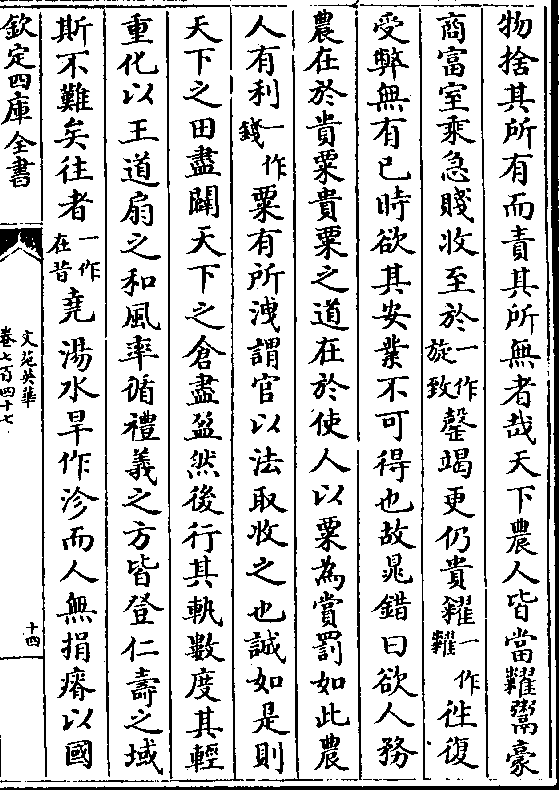 物捨其所有而責其所無者哉天下農人皆當糶鬻豪
商富室乘急賤收至於一作旋致罄竭更仍貴糴一作糶徃復
受弊無有已時欲其安業不可得也故晁錯曰欲人務
農在於貴粟貴粟之道在於使人以粟為賞罰如此農
人有利一作錢粟有所洩謂官以法取收之也誠如是則
天下之田盡闢天下之倉盡盈然後行其執數度其輕
重化以王道扇之和風率循禮義之方皆登仁壽之域
斯不難矣往者一作在昔堯湯水旱作沴而人無捐瘠以國
欽定四庫全書
文苑英華
卷七百四十七
十四